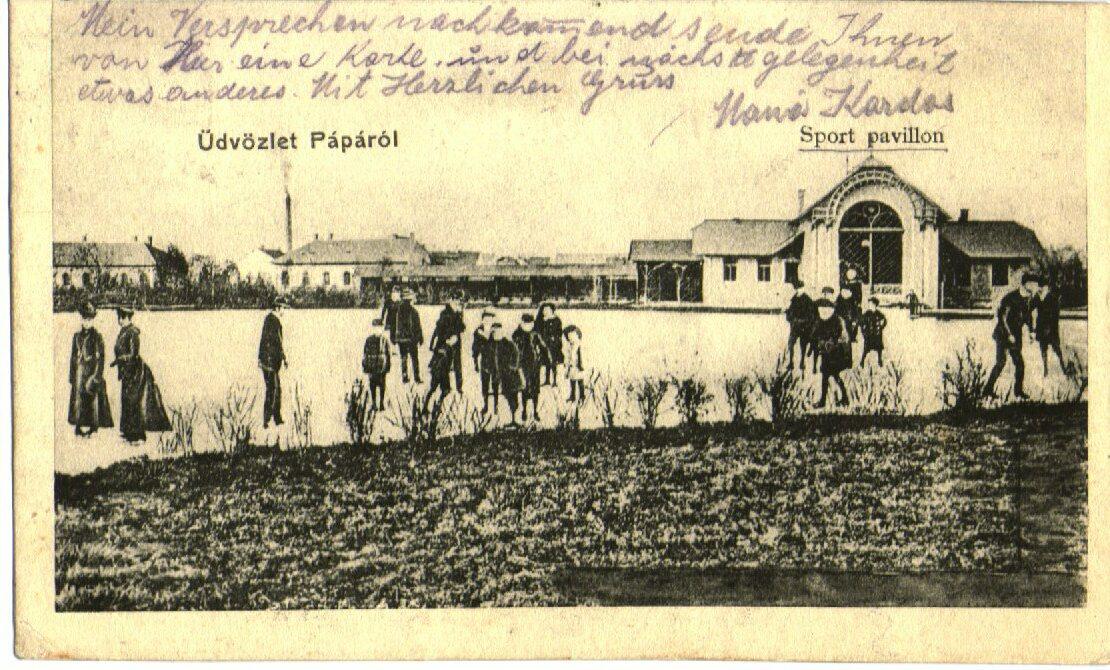 Mein Versprechen nachkomend sende Ihnen
von Hier eine Karte. und bei nächste gelegenheit
etwas anderes. Mit Herzlichen Gruss
Kardos
Üdvözlet Pápáról
Sport pavillon